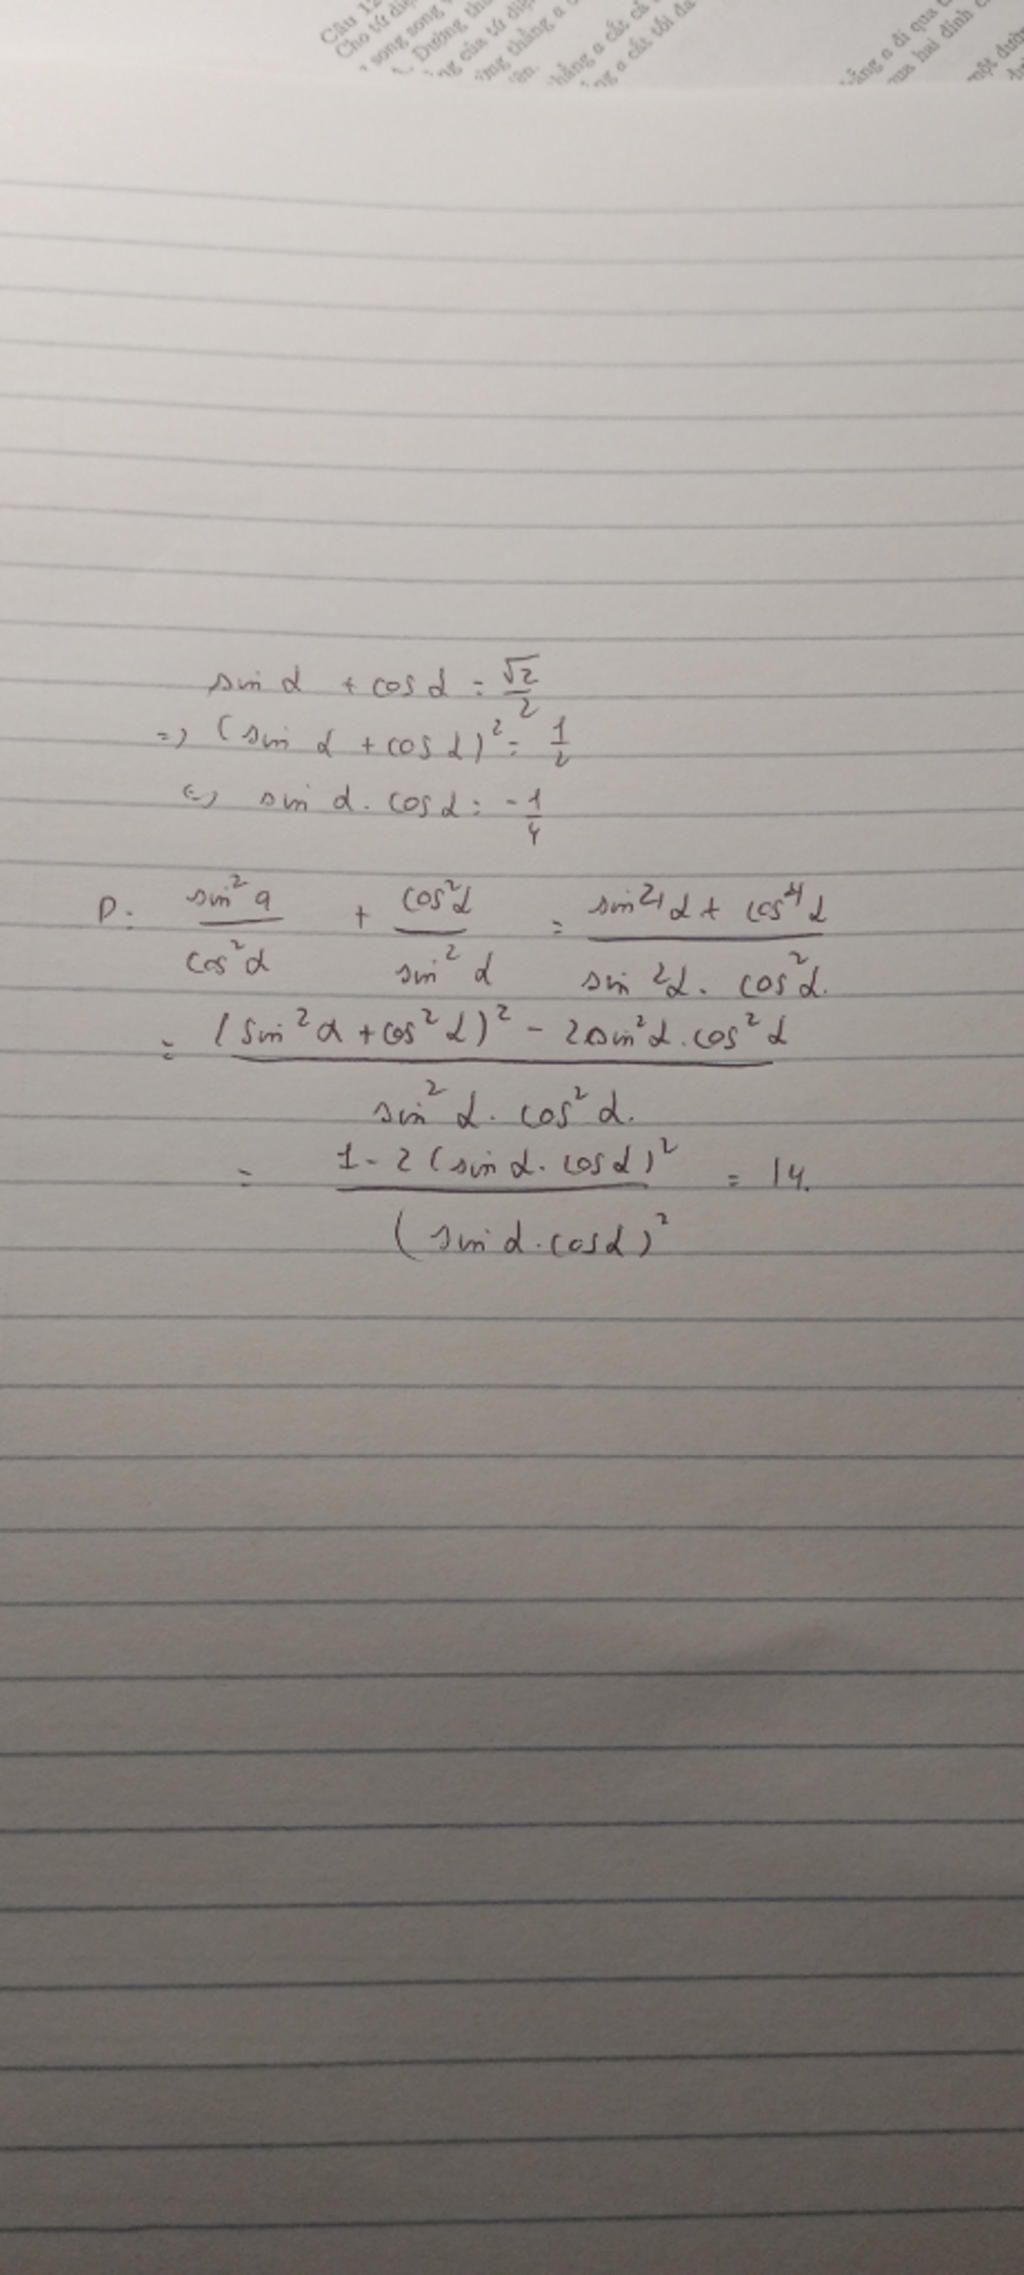 Câu 12
Cho tứ diện
song song
Đường thẳng
hẳng a cắt cả
ng a cắt tối đa
ẳng a đi qua
qua hai đỉnh
một đường
sin α + cos α = √2/2
=> (sin α + cos α)² = 1/2
<=> sin α . cos α = -1/4
P = sin² a/cos² α + cos² α/sin² α = (sin⁴ α + cos⁴ α)/(sin² α . cos² α.)
= ((sin² α + cos² α)² - 2sin² α . cos² α)/(sin² α . cos² α.)
= (1 - 2(sin α . cos α)²)/((sin α . cos α)²) = 14.